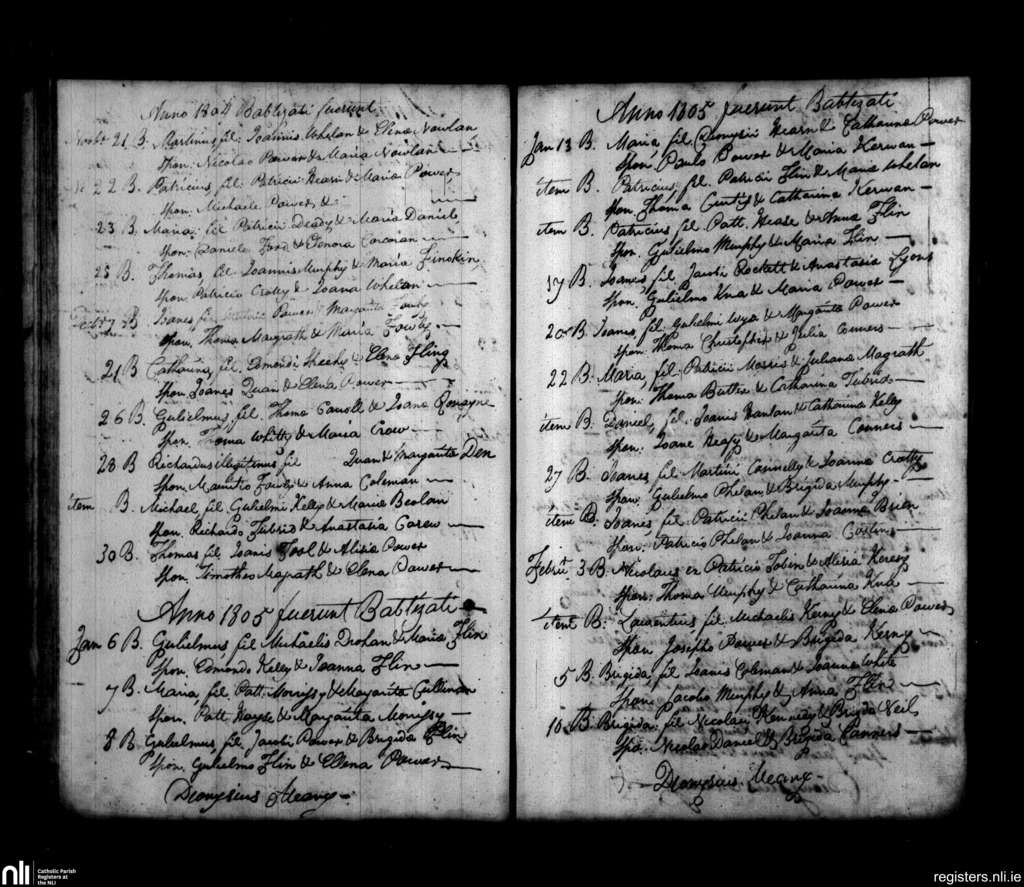 Anno 1804 Babtizati fuerunt
Novbr 21 B. Martinus fil. Joannis Whelan & Elena Nowlan
Spon. Nicolao Power & Maria Nowlan
22 B. Patricius fil. Patricii Hearn & Maria Power
Spon. Michaele Power &
23 B. Maria fil Patricii Deady & Maria Daniel
Spon. Daniele Ford & Elenora Corcoran
25 B. Thomas fil Joannis Murphy & Maria
Spon. Patricio Crotty & Joana Whelan
B Joanes fil. Power & Margarita
Spon. Thoma Magrath & Maria Fowly
21 B Catharina fil. Edmondi Sheehy & Elena Fling
Spon. Joanes Quan & Elena Power
26 B. Gulielmus fil. Thoma Carroll & Joana Ronayne
Spon. Thoma Whitty & Maria Crow
28 B Richardus illegitimus fil Quan & Margarita Den
Spon. Mauritio & Anna Coleman
item B. Michael fil. Gulielmi Kelly & Maria
Spon. Richardo Tubrid & Anastasia Carew
30 B. Thomas fil Joanis Tool & Alisia Power
Spon. Timotheo Magrath & Elena Power
Anno 1805 fuerunt Babtizati
Jam 6 B. Gulielmus fil Michaelis Drohan & Maria Flin
Spon. Edmondo Kelly & Joanna Flin
7 B. Maria fil Patt. Morrisy & Margarita Cullinan
Spon. Patt & Margarita Morrisy
8 B Gulielmus fil. Jacobi Power & Brigida Flin
Spon. Gulielmo Flin & Ellena Power
Dionysius Meany
Anno 1805 fuerunt Babtizati
Jan 13 B. Maria fil Dionysii Hearn & Catharina Power
Spon. Paulo Power & Maria Kerwan
item B. Patricius fil. Patricii Flin & Maria Whelan
Spon Thoma & Catharina Kerwan
item B. Patricius fil Patt. Hease & Anna Flin
Spon. Gulielmo Murphy & Maria Flin
17 B. Joanes fil Jacobi Rockett & Anastasia Lyons
Spon. Gulielmo Kna & Maria Power
20 B Joanes fil Gulielmi Wyse & Margarita Power
Spon Thoma Christopher & Julia Conners
22 B. Maria fil Patricii Morris & Juliana Magrath
Spon. Thoma Butler & Catharina Tubrid
item B. Daniel fil. Joanis Hanlan & Catharina Kelly
Spon. Joane Heafy & Margarita Conners
27 B. Joanes fil Martini Connelly & Joanna Crotty
Spon. Gulielmo Phelan & Brigida Murphy
item B. Joanes fil Patricii Phelan & Joanna Brien
Spon. Patricio Phelan & Joanna
Febru 3 B. Nicolaus ex Patricio Tobin & Alisia
Spon. Thoma Murphy & Catharina Kna
item B. Laurentius fil Michaelis Kerny & Elena Power
Spon. Josepho Power & Brigida Kerny
5 B. Brigida fil Joanis Coleman & Joanna White
Spon. Jacobo Murphy & Anna Flin
10 B. Brigida fil Nicolai Kennely & Brigida Neil
Spo. Nicolao Daniel & Brigida Conners
Dionysius Meany
nli
Catholic Parish
Registers at
the NLI
registers.nli.ie